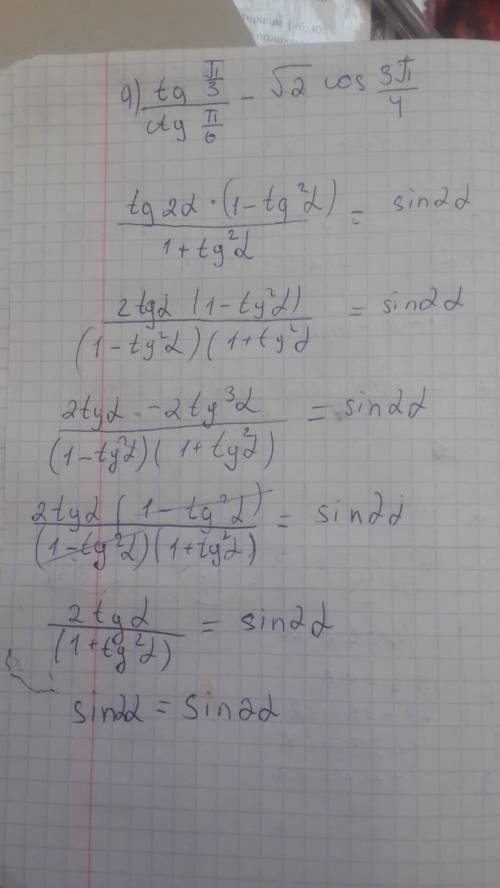 g) tg π/3 / ctg π/6 - √2 cos 3π/4
tg 2α · (1 - tg²α) / 1 + tg²α = sin2α
2tgα (1 - tg²α) / (1 - tg²α)(1 + tg²α = sin2α
2tgα - 2tg³α / (1 - tg²α)(1 + tg²α) = sin2α
2tgα (1 - tg²α) / (1 - tg²α)(1 + tg²α) = sin2α
2tgα / (1 + tg²α) = sin2α
sin2α = sin2α